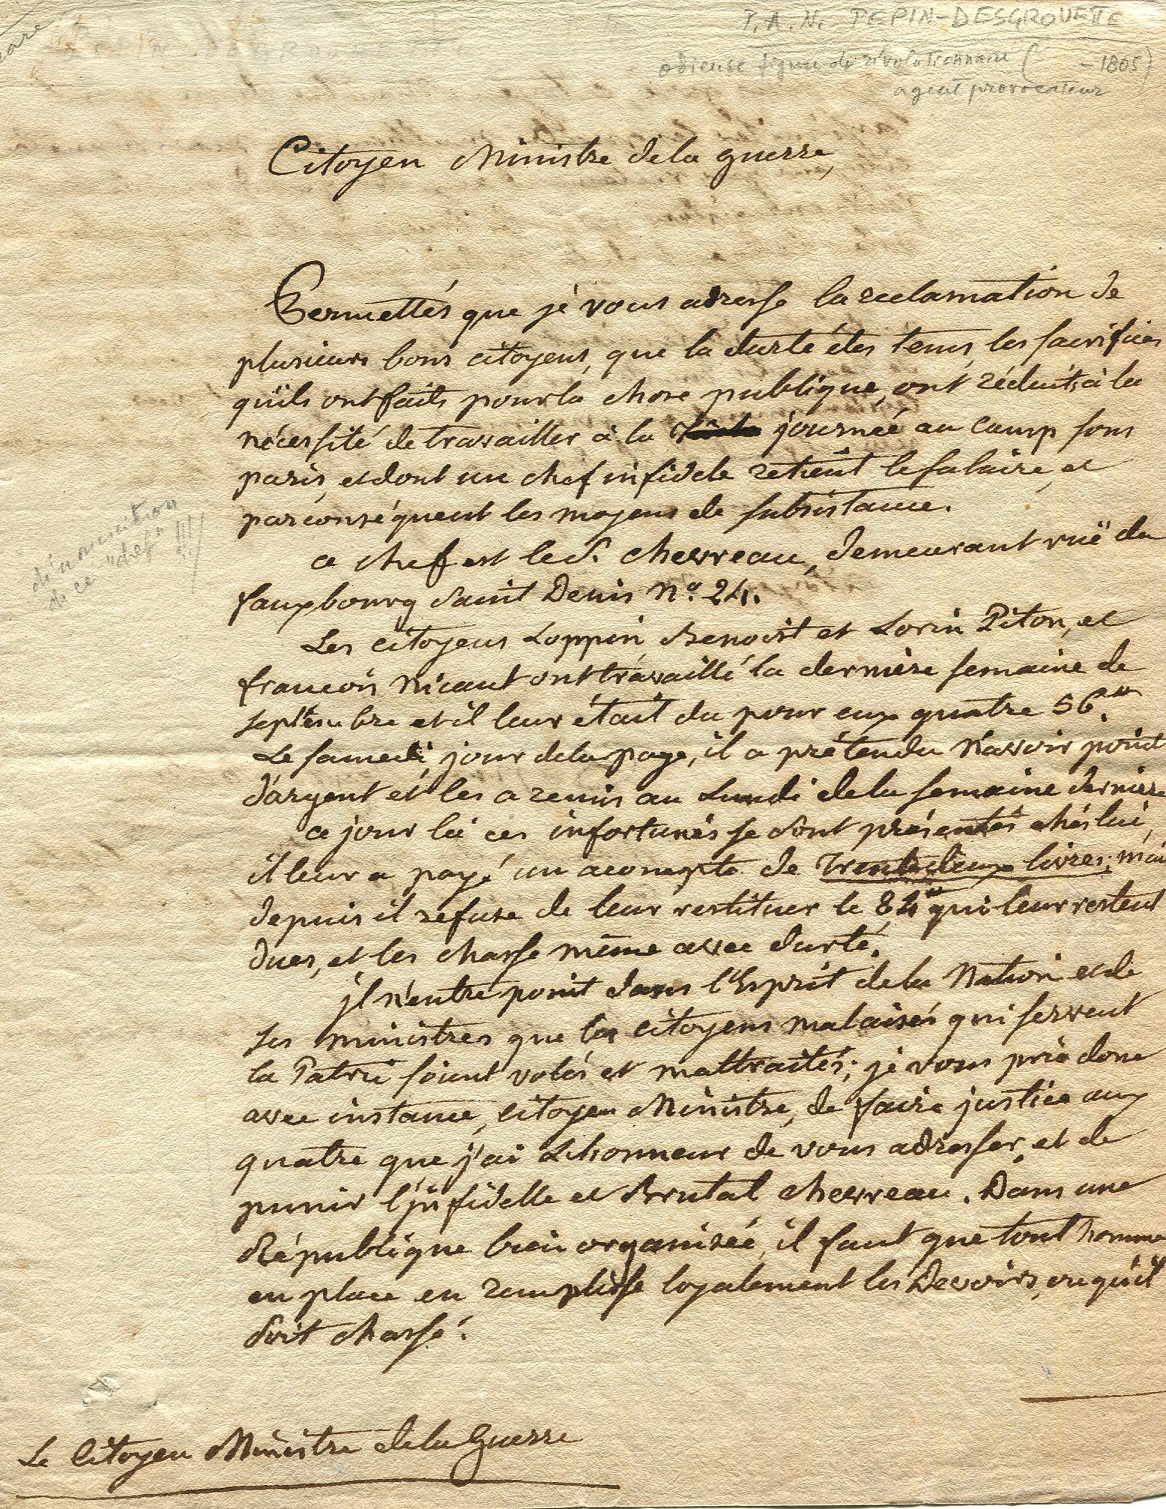 P.A.N. PEPIN-DESGROUETTE
odieuse figure de révolutionnaire ( - 1805)
agent provocateur
Citoyen Ministre de la guerre,
Permettés que je vous adresse la reclamation de
plusieurs bons citoyens, que la durté des tems, les sacrifices
qu'ils ont faits pour la chose publique, ont réduits à la
nécessité de travailler à la journée au camp sous
paris, et dont un chef infidele retient le salaire, et
par conséquent les moyens de subsistance.
ce chef est le S. chevreau, demeurant ruë du
fauxbourg Saint Denis N.º 24.
Les citoyens Loppin, Benoist et Lorin Piton, et
françois Nicaut ont travaillé la dernière semaine de
septembre et il leur était du pour eux quatre 56.
Le samedi, jour de la paye, il a prétendu n'avoir point
d'argent et les a remis au Lundi de la semaine dernière
ce jour là ces infortunés se sont présentés chés lui,
il leur a payé un acompte de trente deux livres; mais
depuis il refuse de leur restituer le 84 qui leur restent
dues, et les chasse même avec durté.
il n'entre point dans l'Esprit de la Nation et de
ses ministres que les citoyens malaisés qui servent
la Patrie soient volés et maltraités; je vous prie donc
avec instance, citoyen Ministre, de faire justice aux
quatre que j'ai L'honneur de vous adresser, et de
punir l'infidelle et Brutal chevreau. Dans une
République bien organisée, il faut que tout homme
en place en remplisse loyalement les Devoirs, ou qu'il
soit chassé.
dénonciation
de ce "chef" !!!
Le Citoyen Ministre de la Guerre